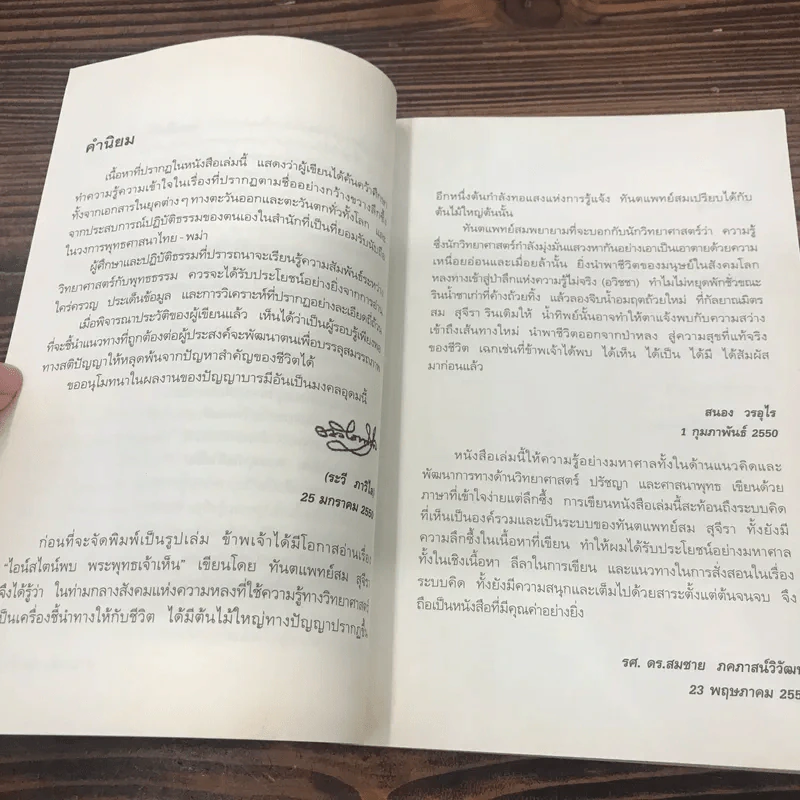 คำนิยม
เนื้อหาที่ปรากฏในหนังสือเล่มนี้ แสดงว่าผู้เขียนได้ค้นคว้าศึกษา
ทำความรู้ความเข้าใจในเรื่องที่ปรากฏตามชื่ออย่างกว้างขวางลึกซึ้ง
ทั้งจากเอกสารในยุคต่าง ๆ ทางตะวันออกและตะวันตกทั่วทั้งโลก และ
จากประสบการณ์ปฏิบัติธรรมของตนเองในสำนักที่เป็นที่ยอมรับนับถือ
ในวงการพุทธศาสนาไทย - พม่า
ผู้ศึกษาและปฏิบัติธรรมที่ปรารถนาจะเรียนรู้ความสัมพันธ์ระหว่าง
วิทยาศาสตร์กับพุทธธรรม ควรจะได้รับประโยชน์อย่างยิ่งจากการอ่าน
ใคร่ครวญ ประเด็นข้อมูล และการวิเคราะห์ที่ปรากฏอย่างละเอียดถี่ถ้วน
เมื่อพิจารณาประวัติของผู้เขียนแล้ว เห็นได้ว่าเป็นผู้รอบรู้เพียงพอ
ที่จะชี้นำแนวทางที่ถูกต้องต่อผู้ประสงค์จะพัฒนาตนเพื่อบรรลุสมรรถภาพ
ทางสติปัญญาให้หลุดพ้นจากปัญหาสำคัญของชีวิตได้
ขออนุโมทนาในผลงานของปัญญาบารมีอันเป็นมงคลอุดมนี้
(ระวี ภาวิไล)
25 มกราคม 2550
ก่อนที่จะจัดพิมพ์เป็นรูปเล่ม ข้าพเจ้าได้มีโอกาสอ่านเรื่อง
“ไอน์สไตน์พบ พระพุทธเจ้าเห็น” เขียนโดย ทันตแพทย์สม สุจีรา
จึงได้รู้ว่า ในท่ามกลางสังคมแห่งความหลงที่ใช้ความรู้ทางวิทยาศาสตร์
เป็นเครื่องชี้นำทางให้กับชีวิต ได้มีต้นไม้ใหญ่ทางปัญญาปรากฏขึ้น
อีกหนึ่งต้นกำลังทอแสงแห่งการรู้แจ้ง ทันตแพทย์สมเปรียบได้กับ
ต้นไม้ใหญ่ต้นนั้น
ทันตแพทย์สมพยายามที่จะบอกกับนักวิทยาศาสตร์ว่า ความรู้
ซึ่งนักวิทยาศาสตร์กำลังมุ่งมั่นแสวงหากันอย่างเอาเป็นเอาตายด้วยความ
เหนื่อยอ่อนและเมื่อยล้านั้น ยิ่งนำพาชีวิตของมนุษย์ในสังคมโลก
หลงทางเข้าสู่ป่าลึกแห่งความรู้ไม่จริง (อวิชชา) ทำไมไม่หยุดพักชั่วขณะ
รินน้ำชาเก่าที่ค้างถ้วยทิ้ง แล้วลองจิบน้ำอมฤตถ้วยใหม่ ที่กัลยาณมิตร
สม สุจีรา รินเติมให้ น้ำทิพย์นั้นอาจทำให้ตาแจ้งพบกับความสว่าง
เข้าถึงเส้นทางใหม่ นำพาชีวิตออกจากป่าหลง สู่ความสุขที่แท้จริง
ของชีวิต เฉกเช่นที่ข้าพเจ้าได้พบ ได้เห็น ได้เป็น ได้มี ได้สัมผัส
มาก่อนแล้ว
สนอง วรอุไร
1 กุมภาพันธ์ 2550
หนังสือเล่มนี้ให้ความรู้อย่างมหาศาลทั้งในด้านแนวคิดและ
พัฒนาการทางด้านวิทยาศาสตร์ ปรัชญา และศาสนาพุทธ เขียนด้วย
ภาษาที่เข้าใจง่ายแต่ลึกซึ้ง การเขียนหนังสือเล่มนี้สะท้อนถึงระบบคิด
ที่เห็นเป็นองค์รวมและเป็นระบบของทันตแพทย์สม สุจีรา ทั้งยังมี
ความลึกซึ้งในเนื้อหาที่เขียน ทำให้ผมได้รับประโยชน์อย่างมหาศาล
ทั้งในเชิงเนื้อหา ลีลาในการเขียน และแนวทางในการสั่งสอนในเรื่อง
ระบบคิด ทั้งยังมีความสนุกและเต็มไปด้วยสาระตั้งแต่ต้นจนจบ จึง
ถือเป็นหนังสือที่มีคุณค่าอย่างยิ่ง
รศ. ดร.สมชาย ภคภาสน์วิวัฒน์
23 พฤษภาคม 255